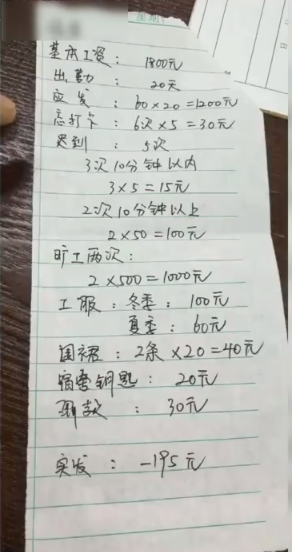 基本工资: 1800元
出勤: 20天
应发: 60×20=1200元
忘打卡: 6次×5=30元
迟到: 5次
3次10分钟以内
3×5=15元
2次10分钟以上
2×50=100元
旷工两次:
2×500=1000元
工服: 冬季: 100元
夏季: 60元
围裙: 2条×20=40元
宿舍钥匙: 20元
罚款: 30元
实发: -195元